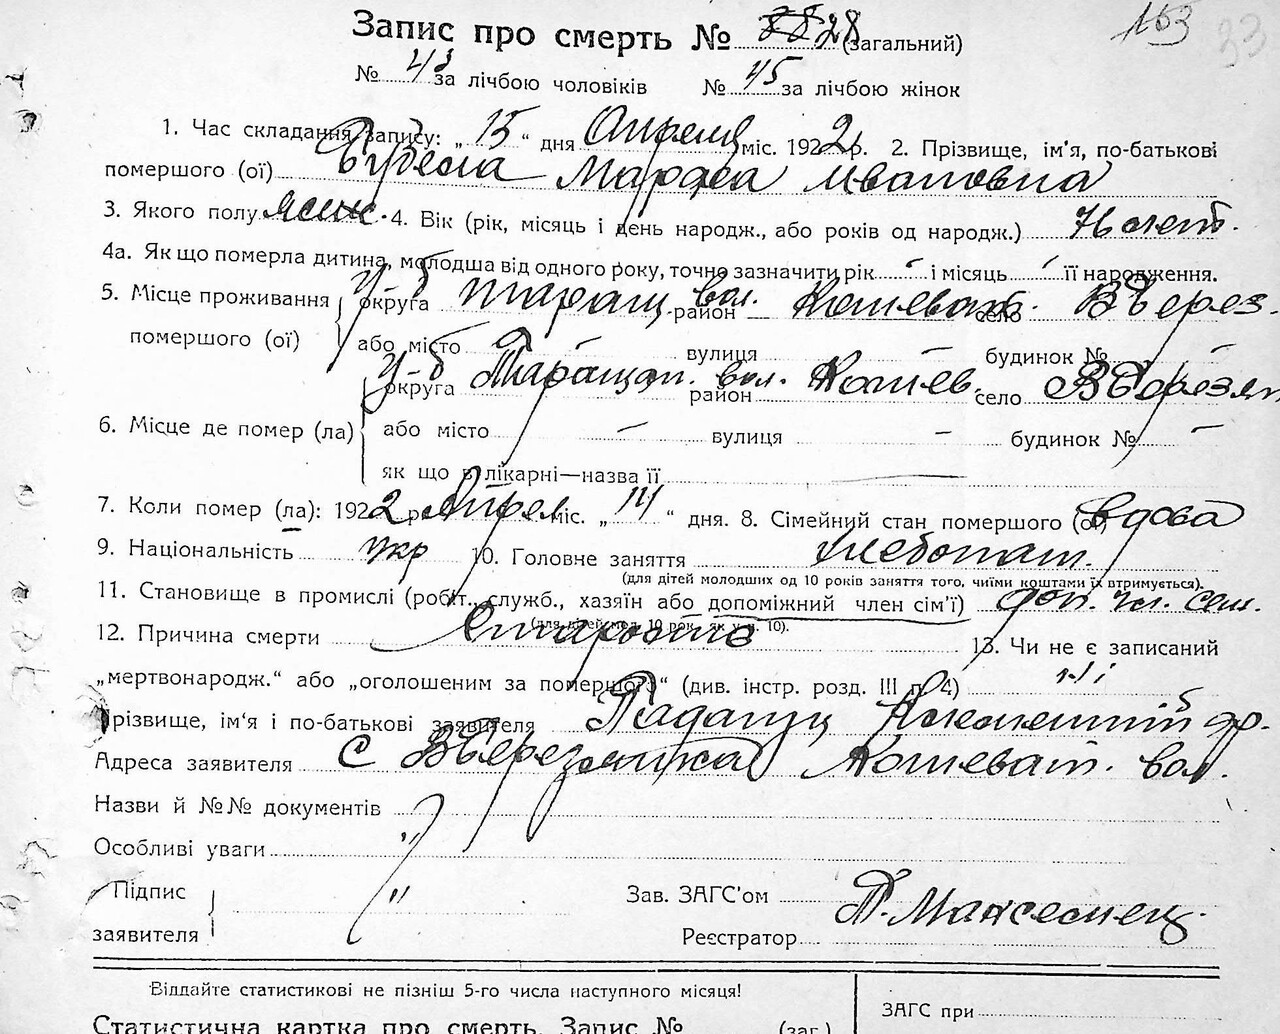 163 33
Запис про смерть № 88 28 (загальний)
№ 43 за лічбою чоловіків № 45 за лічбою жінок
1. Час складання запису: „ 15 “ дня Апреля міс. 1922 р. 2. Прізвище, ім'я, по-батькові
помершого (ої) Марфа Ивановна
3. Якого полу женс. 4. Вік (рік, місяць і день народж., або років од народж.) лет.
4а. Як що померла дитина, молодша від одного року, точно зазначити рік - і місяць - її народження.
5. Місце проживання округа Таращ. район вол. Кошеват. село В Берез.
помершого (ої) або місто - вулиця - будинок № -
округа Таращан. район вол. Кошев. село В Березян
6. Місце де помер (ла) або місто - вулиця - будинок № -
як що в лікарні—назва її —
7. Коли помер (ла): 1922 р. Апрел міс. „ 14 “ дня. 8. Сімейний стан помершого (ої) вдова
9. Національність укр 10. Головне заняття хлебопаш.
(для дітей молодших од 10 років заняття того, чиїми коштами їх втримується).
11. Становище в промислі (робіт., служб., хазяїн або допоміжний член сім'ї) доп. чл. сем.
(для дітей мол. 10 рок. як у п. 10).
12. Причина смерти Старость 13. Чи не є записаний
„мертвонародж.“ або „оголошеним за помершого“ (див. інстр. розд. III п. 4) ні
Прізвище, ім'я і по-батькові заявителя
Адреса заявителя с В Березянка Кошеват. вол.
Назви й №№ документів
Особливі уваги "
Підпис " Зав. ЗАГС'ом
заявителя Реєстратор
Віддайте статистикові не пізніш 5-го числа наступного місяця!
ЗАГС при
Статистична картка про смерть. Запис № (заг.)